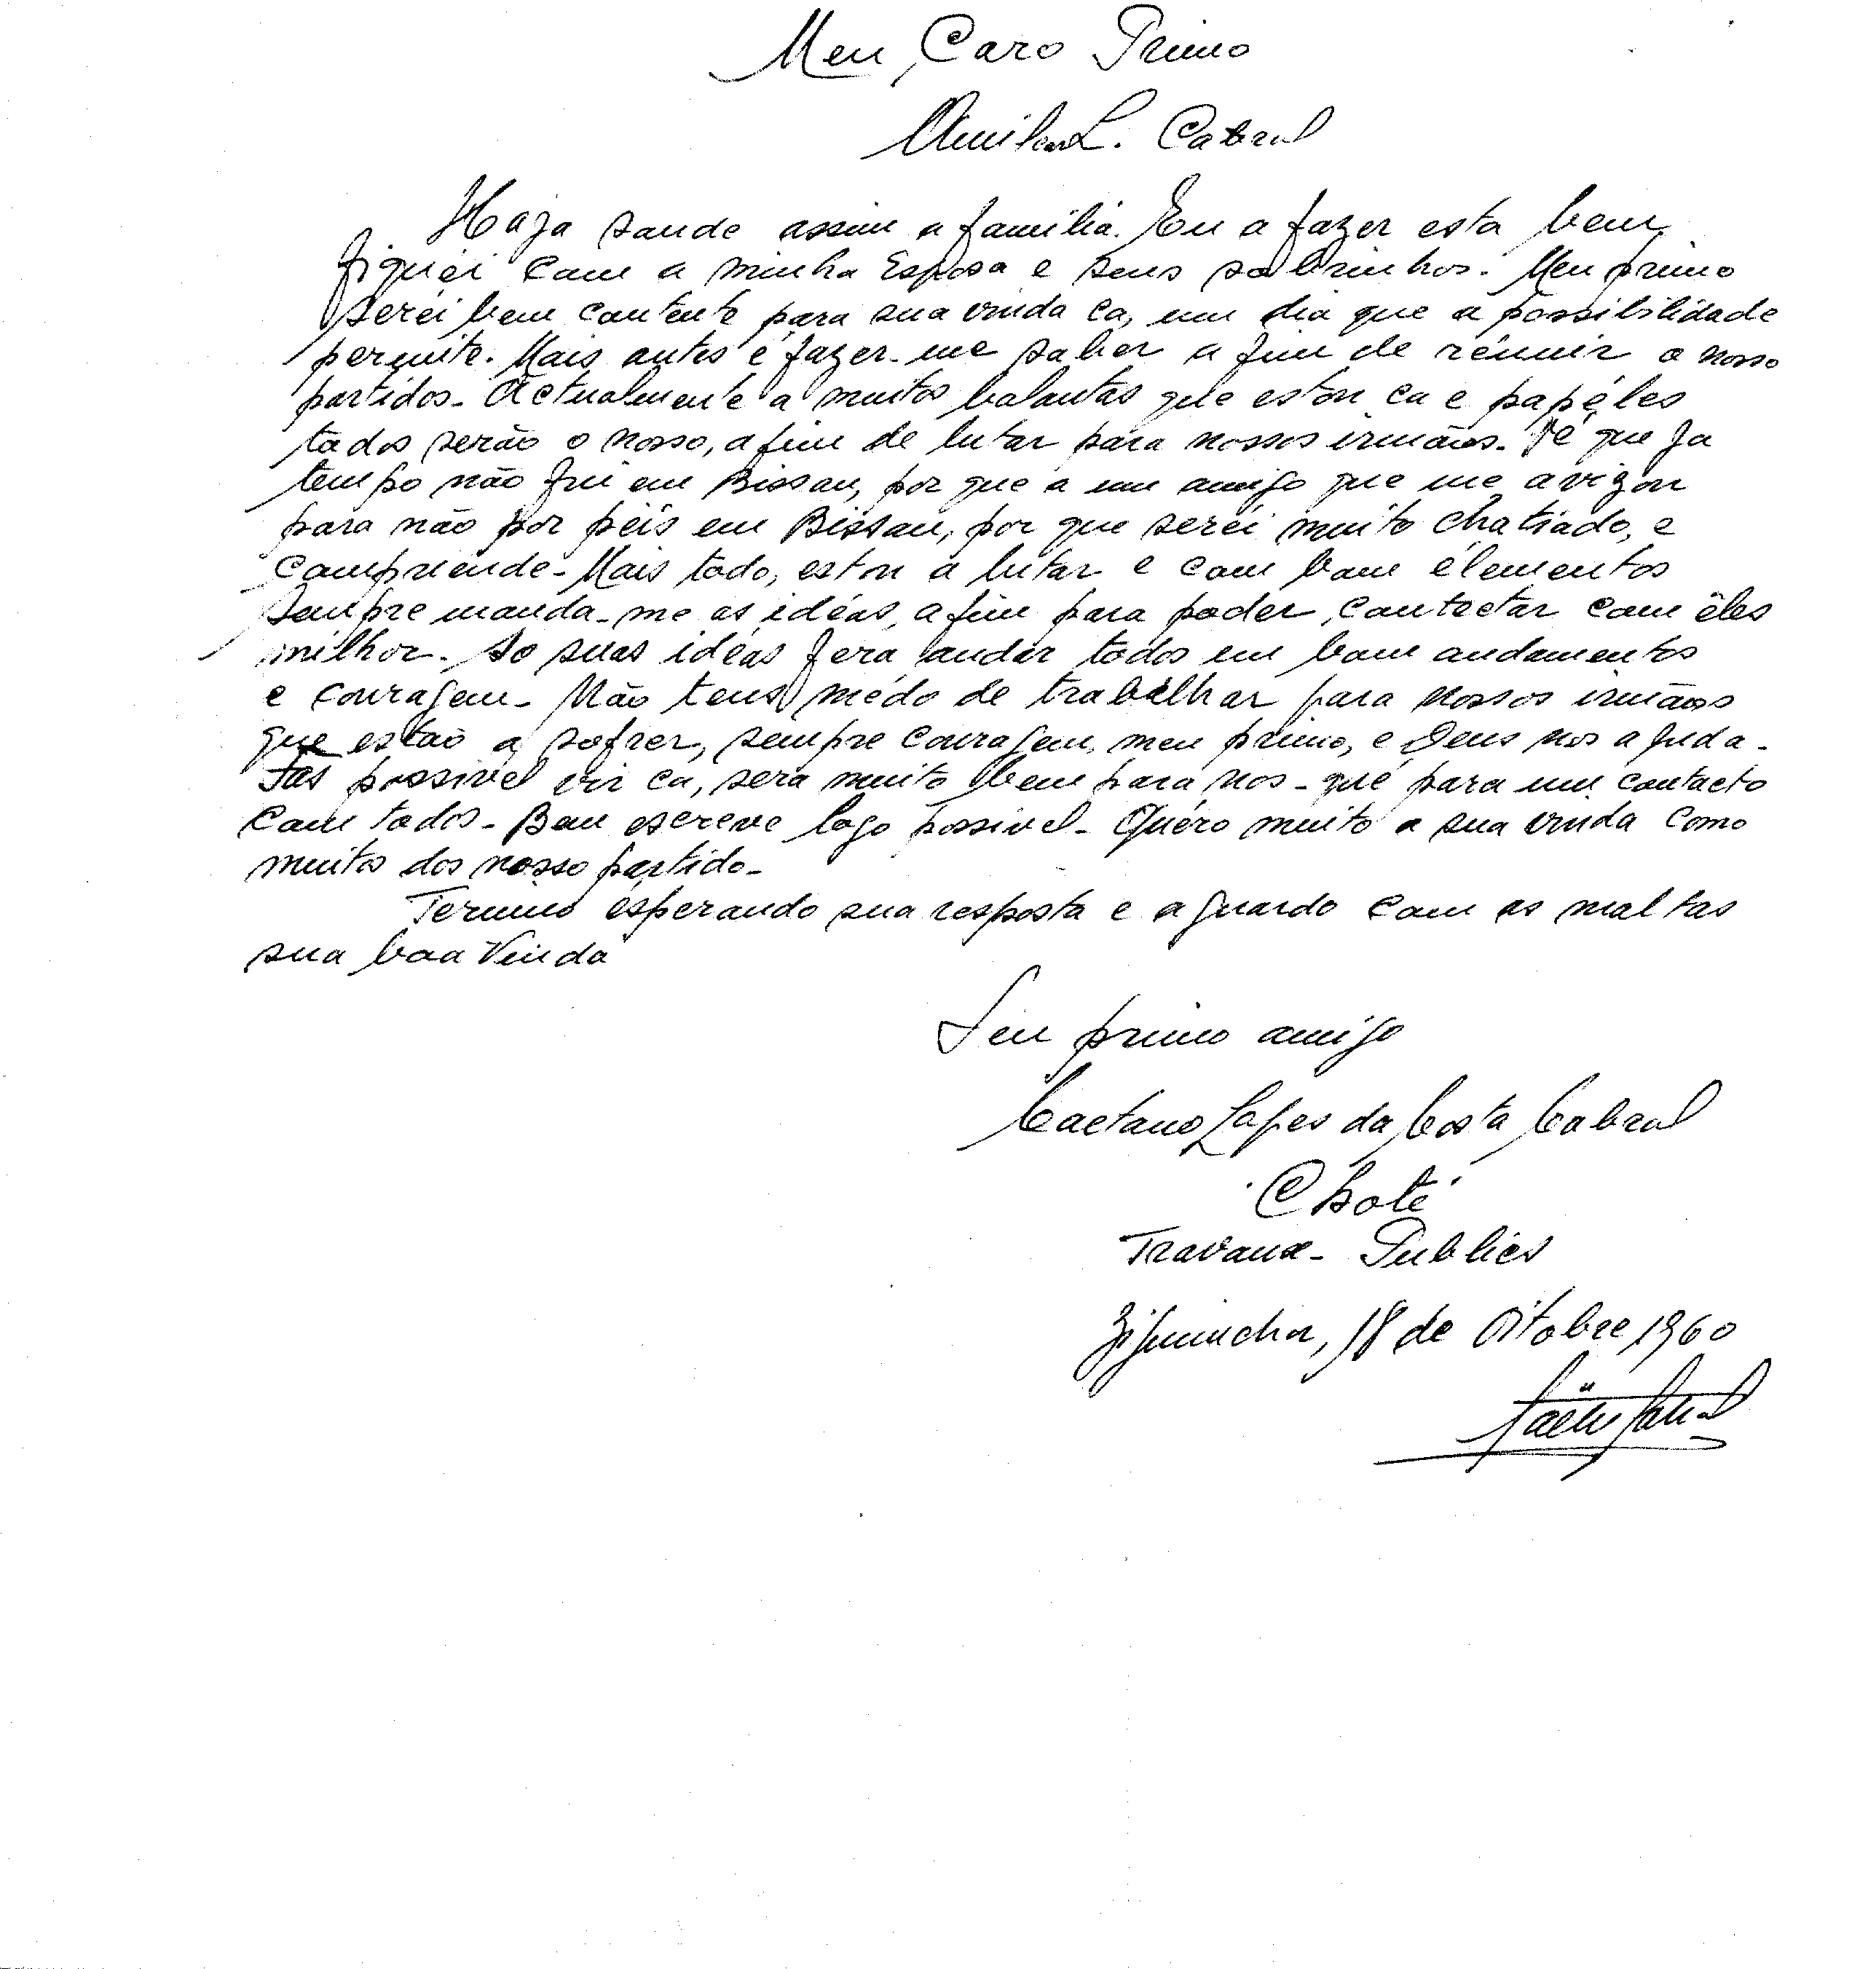 Meu Caro Primo
Amilcar L. Cabral
Haja saude assim a familia. Eu a fazer esta bem
fiquei com a minha Esposa e seus sobrinhos. Meu primo
serei bem contente para sua vinda ca, um dia que a possibilidade
permite. Mais antes é fazer-me saber a fim de réunir o nosso
partidos. Actualmente a muitos balantas que estou ca e papéles
todos serão o nosso, afim de lutar para nossos irmãos. É que ja
tempo não fui em Bissau, por que a um amigo que me avizou
para não por péis em Bissau, por que serei muito chatiado, e
Compriende- Mais todo, estou a lutar e com bom élementos
Sempre manda-me as idéas, afim para poder contactar com êles
milhor. So suas idéas fera andar todos em bom andamentos
e couragem- Não tens mêdo de trabalhar para nossos irmãos
que estão a sofrer, sempre couragem, meu primo, e Deus nos ajuda-
Fas possivel vir ca, sera muito bem para nos- que para um contacto
Com todos- Bom escreve logo possivel- Quéro muito a sua vinda como
muitos dos nosso partido-
Termino esperando sua resposta e aguardo com as maltas
sua boa Vinda
Seu primo amigo
Caetano Lopes da Costa Cabral
Choté
Travaux- Publics
Zifuinchor, 18 de Oitobre 1960